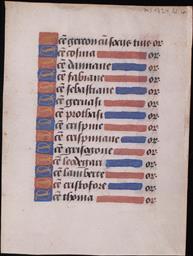 sce gereon cu socus tuis or
sce cosma or
sce damiane or
sce fabiane or
sce sebastiane or
sce geruasi or
sce prothasi or
sce crispine or
sce crispiniane or
sce grisogone or
sce leodegari or
sce lamberte or
sce cristofore or
sce thoma or